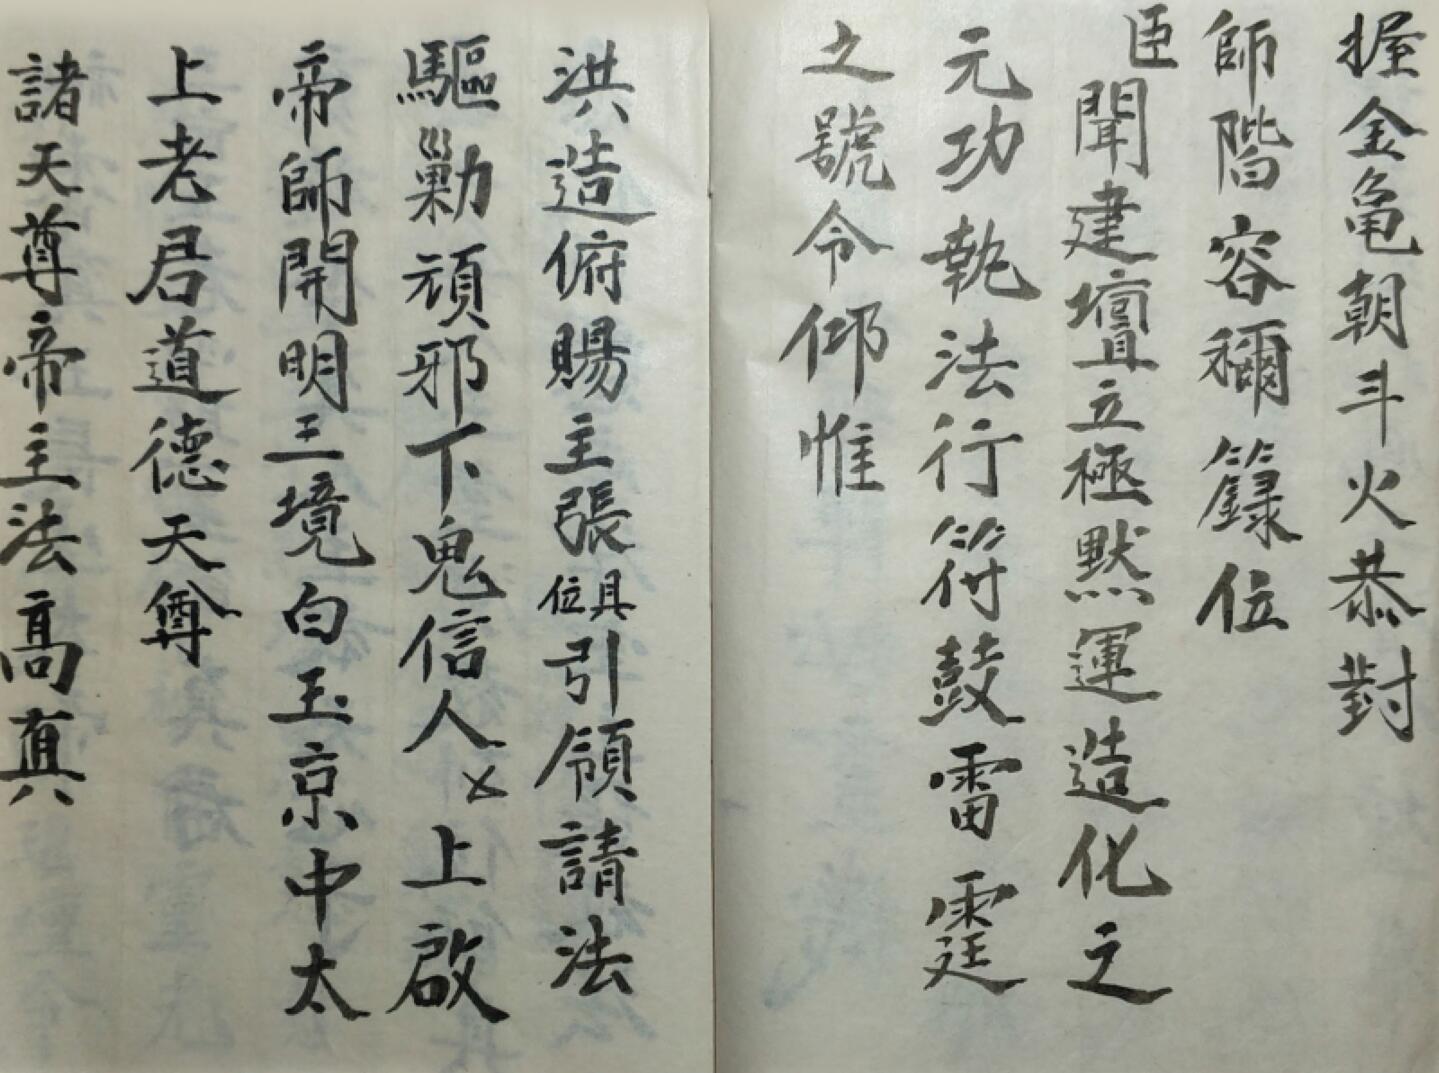 握金亀朝斗火恭對
師階容稱籙位
臣聞建壇立極默運造化之
元功執法行符鼓雷霆
之號令仰惟
洪造俯賜主張具位引領請法
驅勦頑邪下鬼信人㐅上啟
帝師開明三境白玉京中太
上老君道德天尊
諸天尊帝主法高真